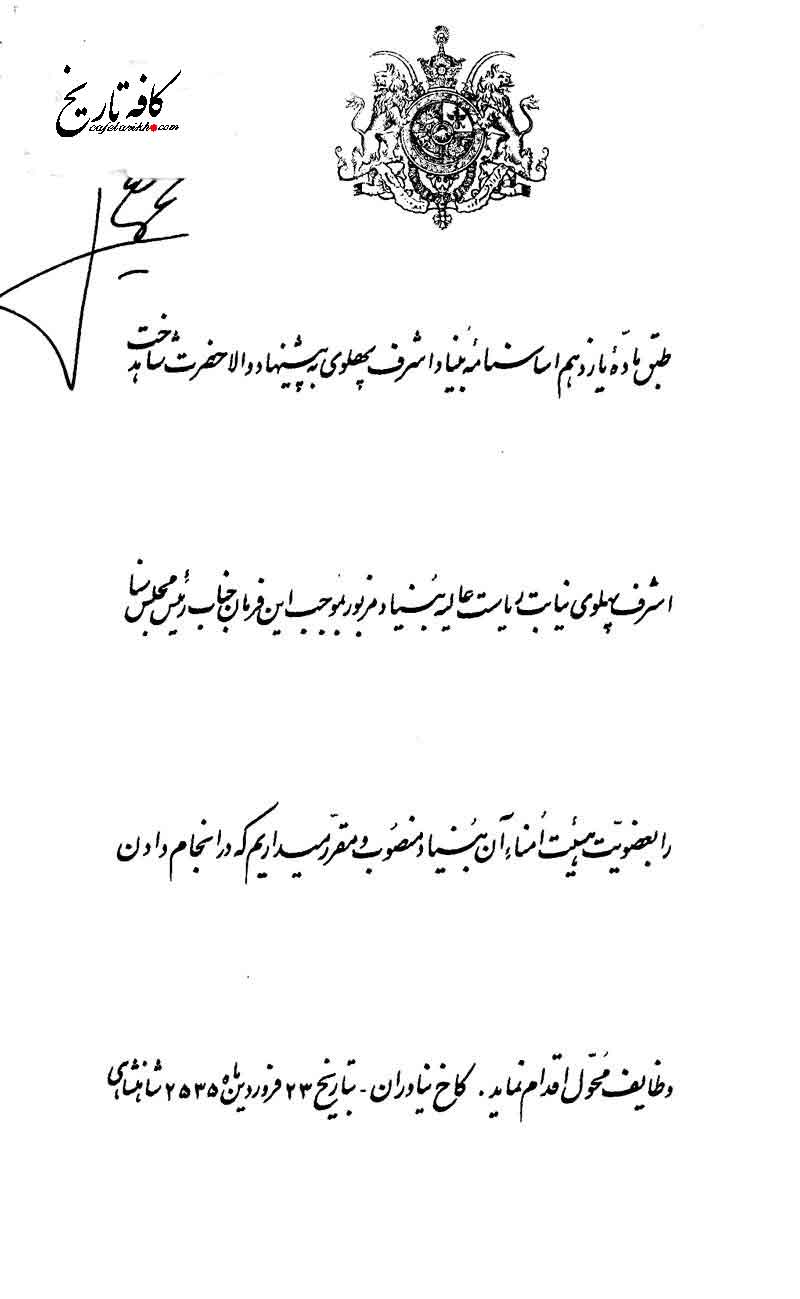 کافه تاریخ
cafetarikh.com
طبق مادّهٔ یازدهم اساسنامهٔ بُنیاد اشرف پهلوی به پیشنهاد والاحضرت شاهدخت
اشرف پهلوی نیابت ریاست عالیه بُنیاد مزبور بموجب این فرمان جناب رئیس مجلس سنا
را بعضویّت هیئت اُمناء آن بُنیاد منصُوب و مقرّر میداریم که در انجام دادن
وظایف مُحوّل اقدام نماید. کاخ نیاوران - بتاریخ ۲۳ فروردین ماه ۲۵۳۵ شاهنشاهی